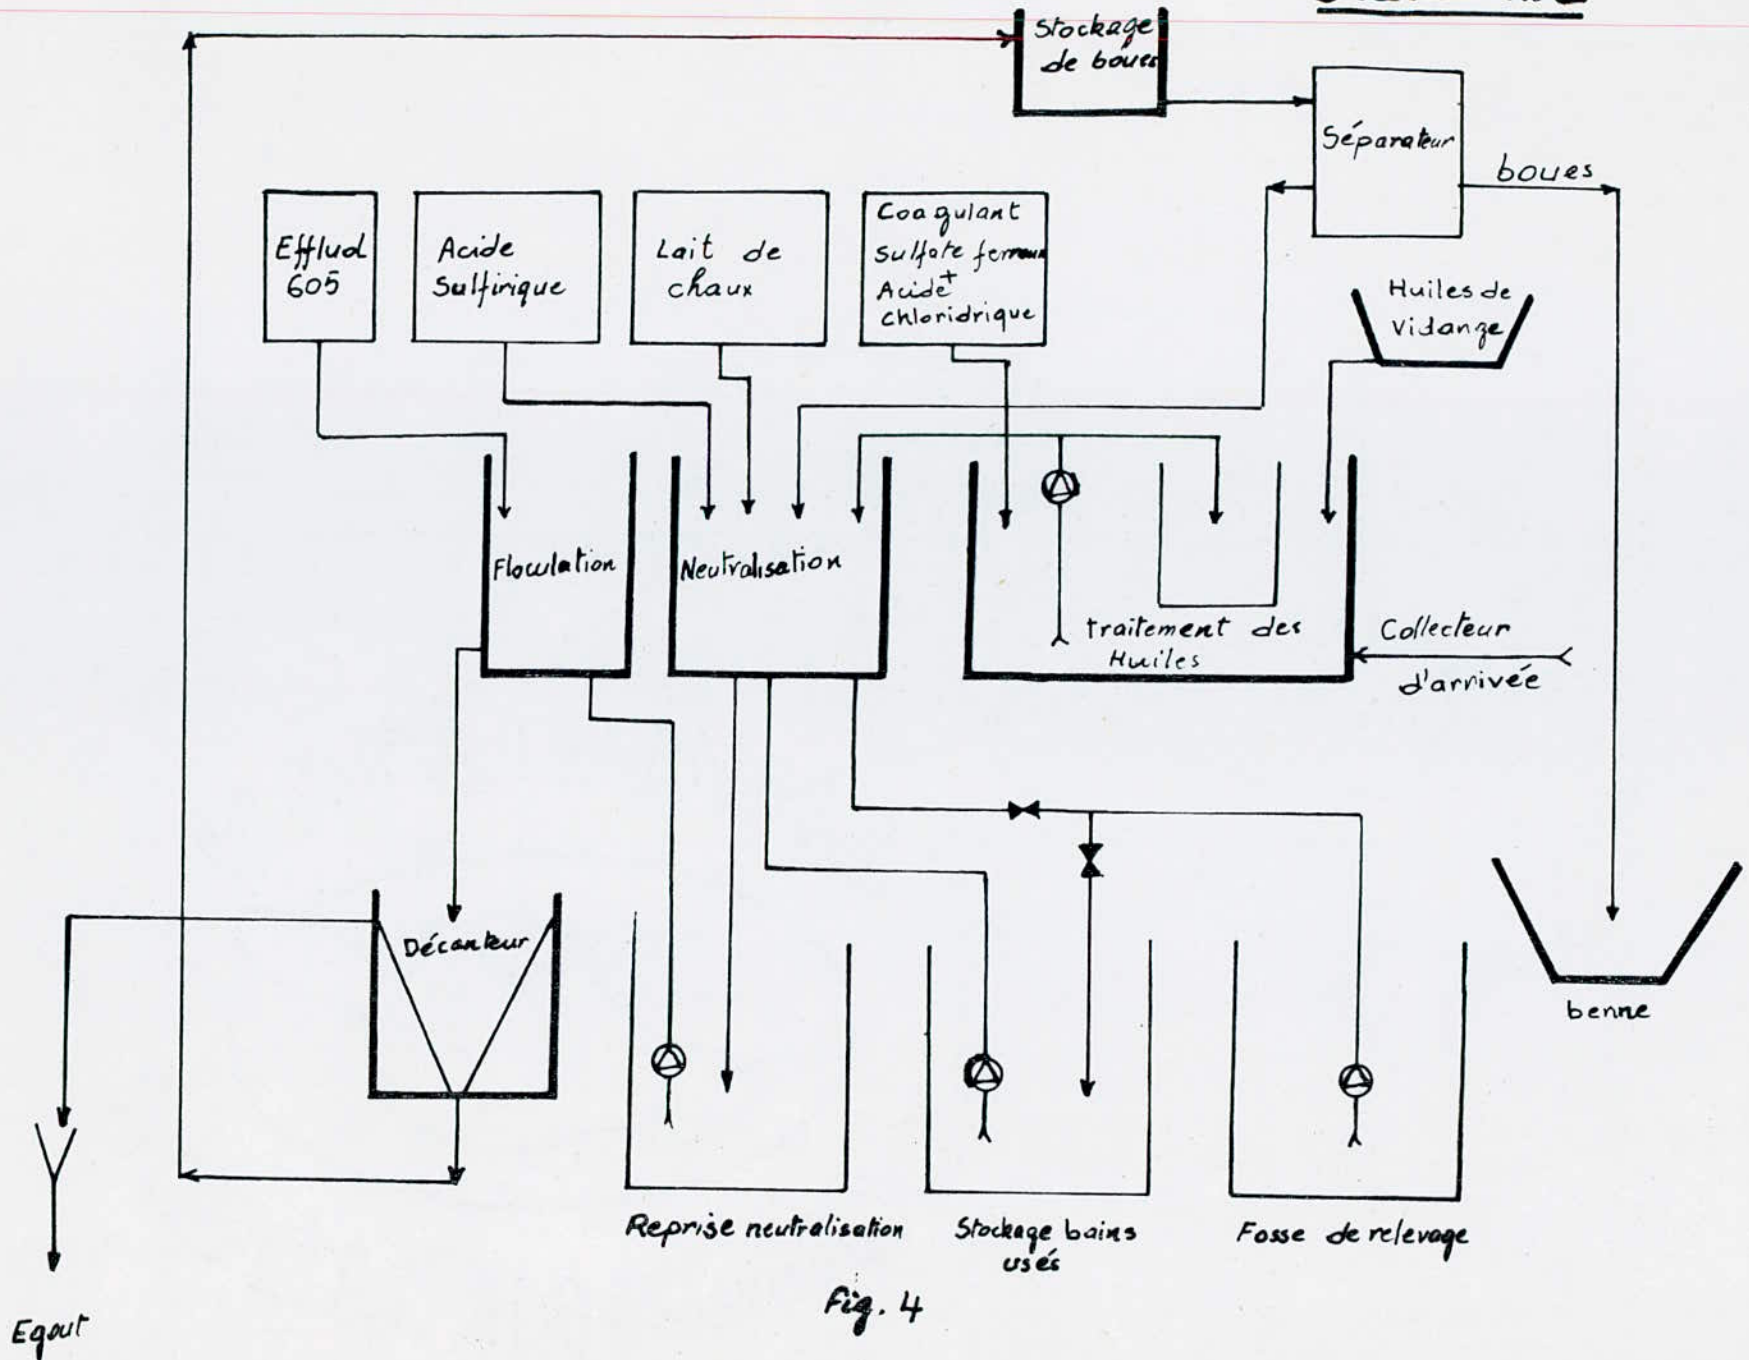 Stockage
de boues
Séparateur
boues
Efflud
605
Acide
Sulfirique
Lait de
chaux
Coagulant
Sulfate ferreux
+
Acide
chloridrique
Huiles de
Vidange
Floculation
Neutralisation
traitement des
Huiles
Collecteur
d'arrivée
Décanteur
benne
Reprise neutralisation
Stockage bains
usés
Fosse de relevage
Fig. 4
Egout